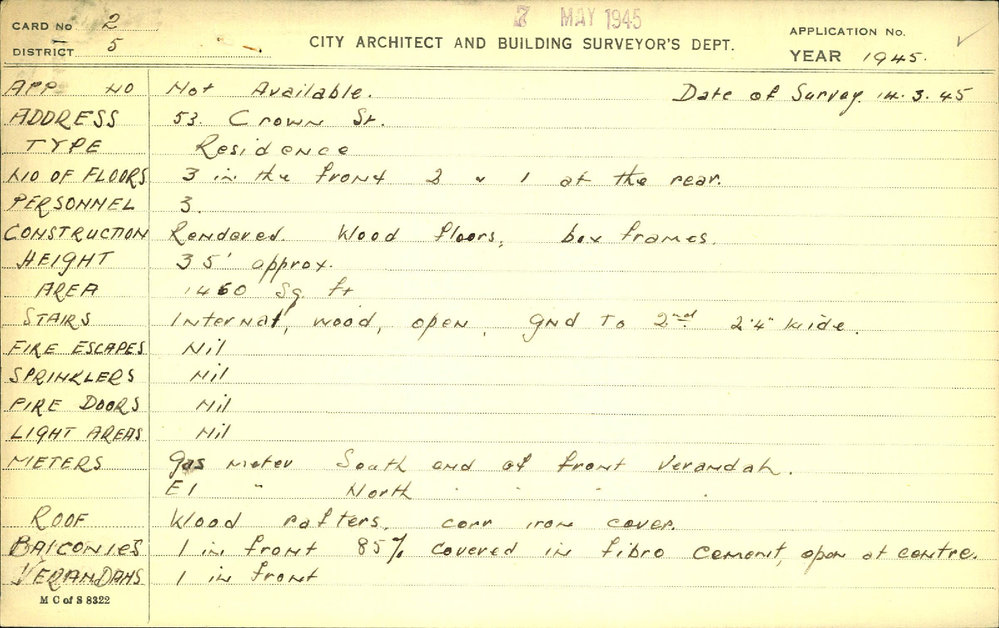 7 MAY 1945
CARD No 2
DISTRICT 5
CITY ARCHITECT AND BUILDING SURVEYOR'S DEPT.
APPLICATION No.
YEAR 1945.
APP NO Not Available. Date of Survey 14.3.45
ADDRESS 53. Crown St.
TYPE Residence
NO OF FLOORS 3 in the front 2 & 1 at the rear.
PERSONNEL 3.
CONSTRUCTION Rendered. Wood floors, box frames.
HEIGHT 35' approx.
AREA 1460 Sq ft
STAIRS Internal, wood, open, gnd to 2nd 2'4" wide.
FIRE ESCAPES Nil
SPRINKLERS Nil
FIRE DOORS Nil
LIGHT AREAS Nil
METERS Gas meter South end of front Verandah.
El " North " " "
ROOF Wood rafters, corr iron cover.
BALCONIES 1 in front 85% covered in fibro cement, open at centre.
VERANDAHS 1 in front
M C of S 8322